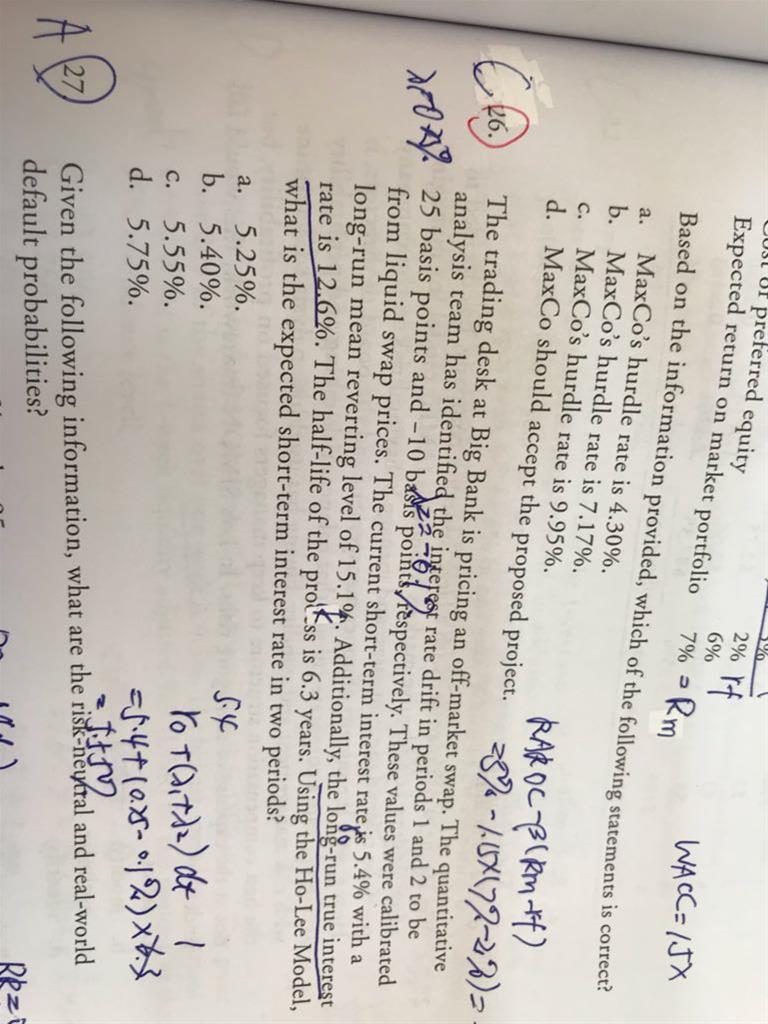 Cost of preferred equity
Expected return on market portfolio
2% rf
6%
7% = Rm
Based on the information provided, which of the following statements is correct?
a. MaxCo's hurdle rate is 4.30%.
b. MaxCo's hurdle rate is 7.17%.
c. MaxCo's hurdle rate is 9.95%.
d. MaxCo should accept the proposed project.
WACC = 15%
RAROC - β(Rm-rf)
=8% - 1.15×(7%-2%)=
C 26. The trading desk at Big Bank is pricing an off-market swap. The quantitative
analysis team has identified the interest rate drift in periods 1 and 2 to be
25 basis points and −10 basis points, respectively. These values were calibrated
from liquid swap prices. The current short-term interest rate is 5.4% with a
long-run mean reverting level of 15.1%. Additionally, the long-run true interest
rate is 12.6%. The half-life of the process is 6.3 years. Using the Ho-Lee Model,
what is the expected short-term interest rate in two periods?
a. 5.25%.
b. 5.40%.
c. 5.55%.
d. 5.75%.
5.4
r0+(λ1+λ2) dt
A 27. Given the following information, what are the risk-neutral and real-world
default probabilities?